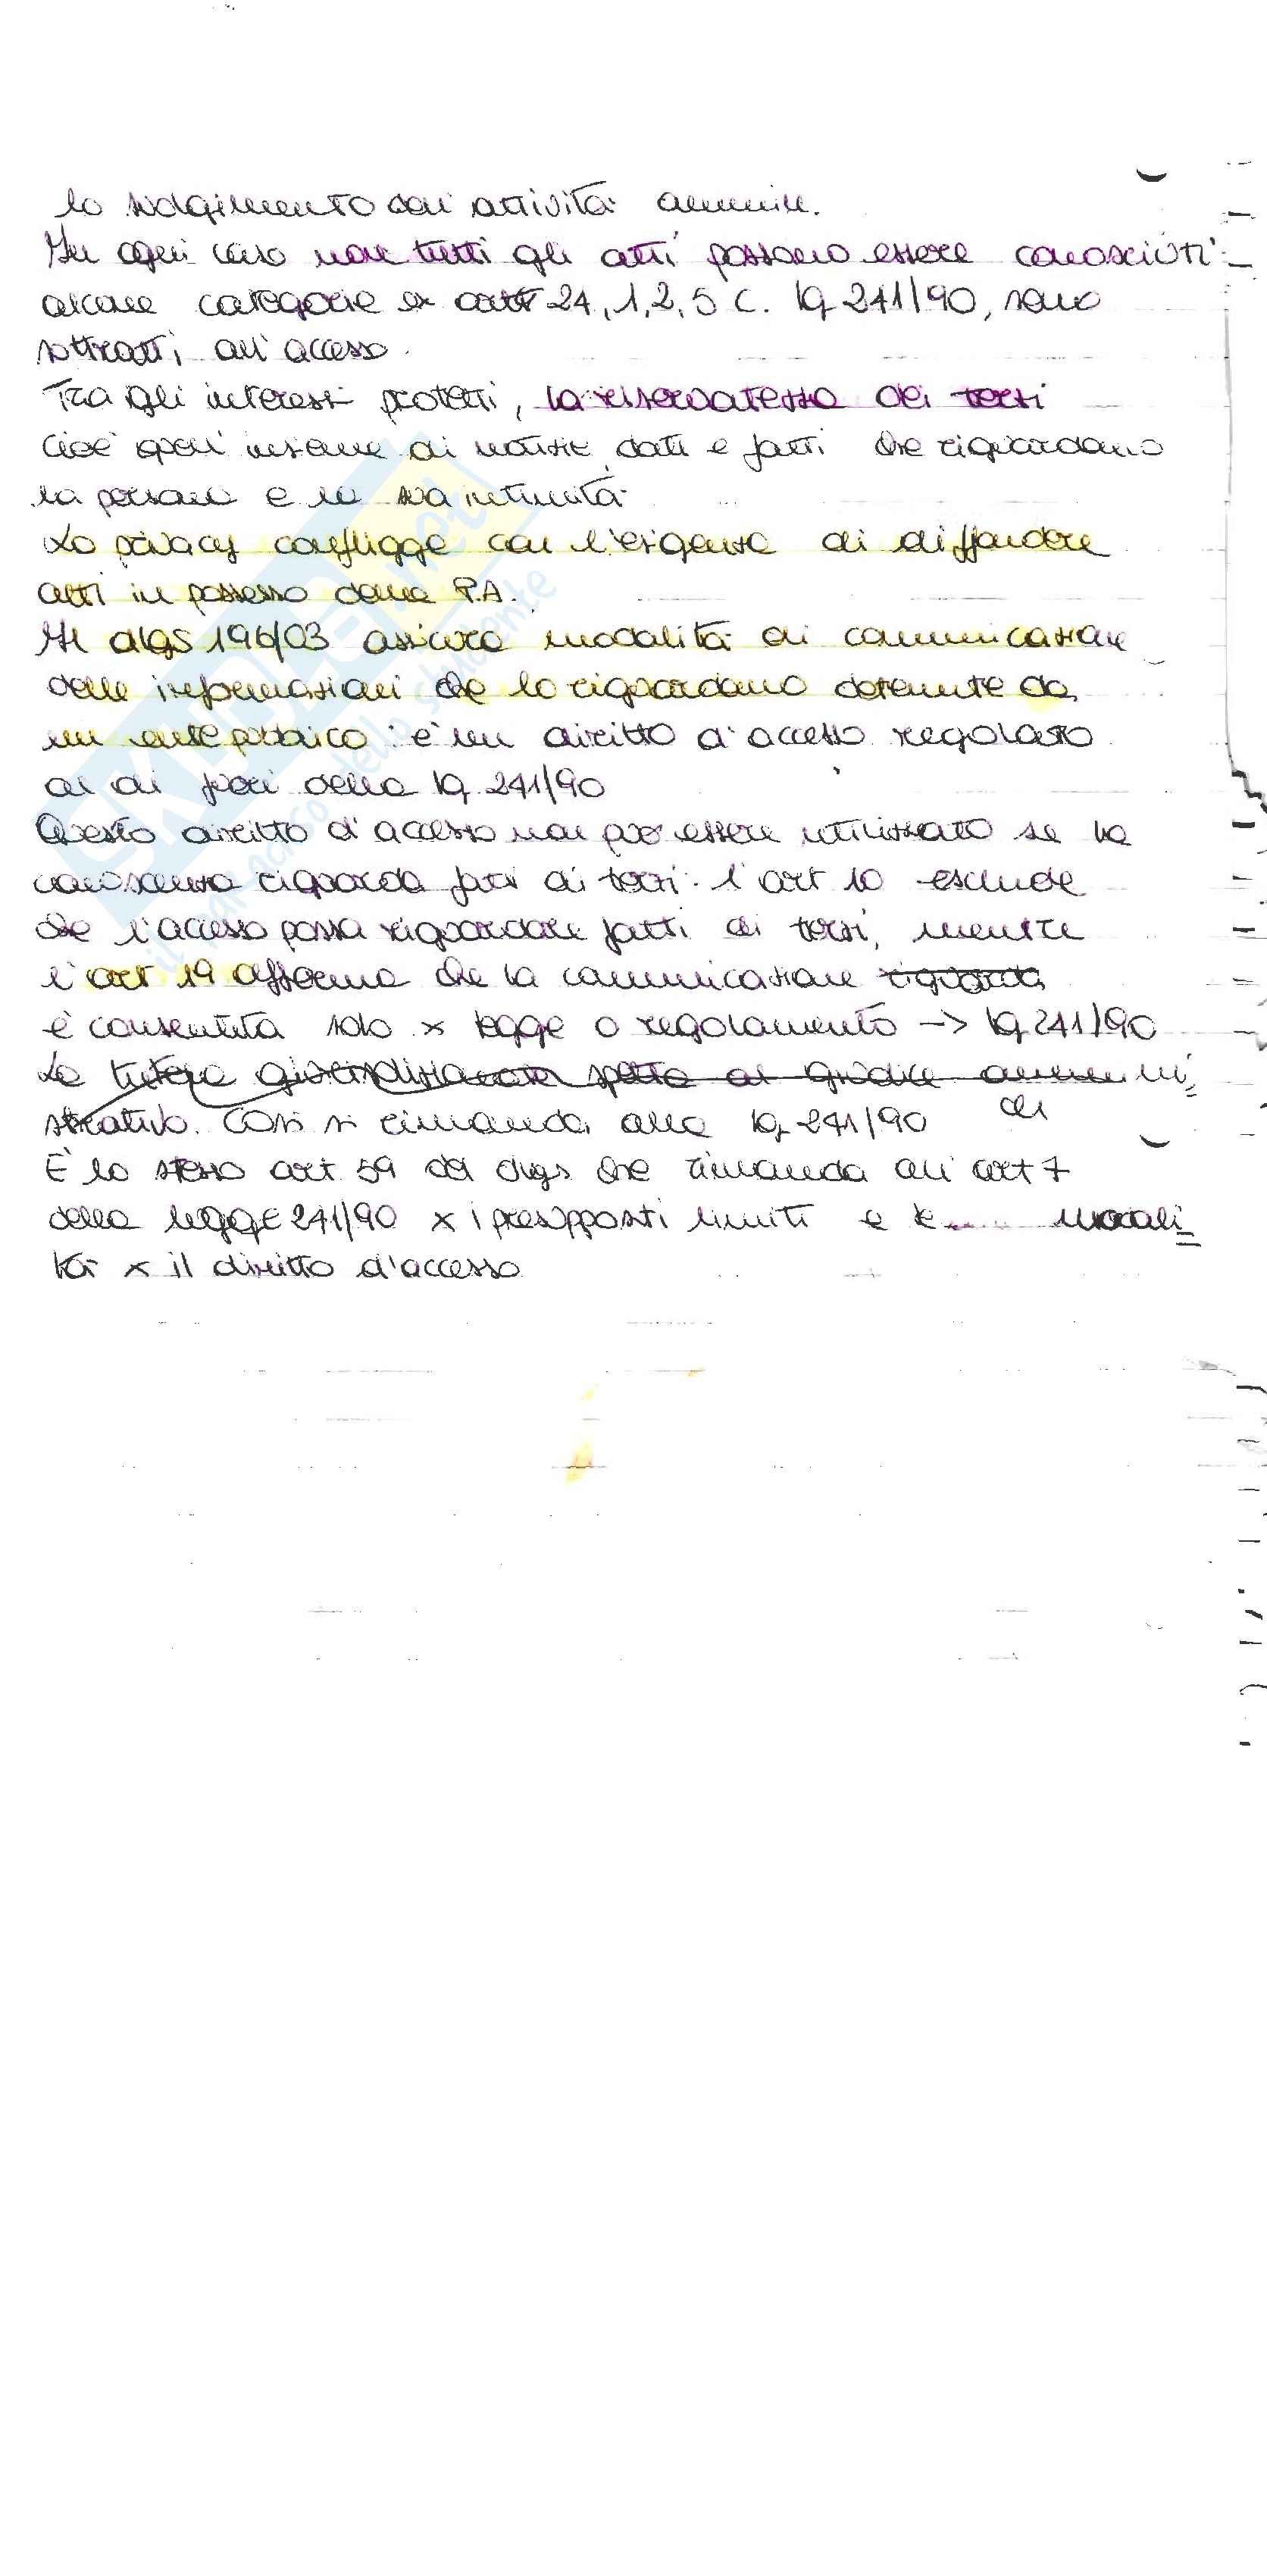 lo svolgimento dell'attività ammin.
In ogni caso non tutti gli atti possono essere conosciuti:
alcune categorie ex art 24, 1, 2, 5 c. lg 241/90, sono
sottratti all'accesso.
Tra gli interessi protetti, la riservatezza dei terzi
cioè quell'insieme di notizie, dati e fatti che riguardano
la persona e la sua intimità.
La privacy confligge con l'esigenza di diffondere
atti in possesso della P.A.
Il dlgs 196/03 assicura modalità di comunicazione
delle informazioni che lo riguardano detenute da
un ente pubblico: è un diritto d'accesso regolato
al di fuori della lg 241/90
Questo diritto d'accesso non può essere utilizzato se la
conoscenza riguarda fatti di terzi. l'art 10 esclude
che l'accesso possa riguardare fatti di terzi, mentre
l'art 19 afferma che la comunicazione riguarda
è consentita solo x legge o regolamento -> lg 241/90
La tutela giurisdizionale spetta al giudice ammini
strativo. Così si rimanda alla lg 241/90
È lo stesso art 59 del dlgs che rimanda all'art 7
della legge 241/90 x i presupposti limiti e le modali
tà x il diritto d'accesso
SKUOLA.net
il paradiso dello studente